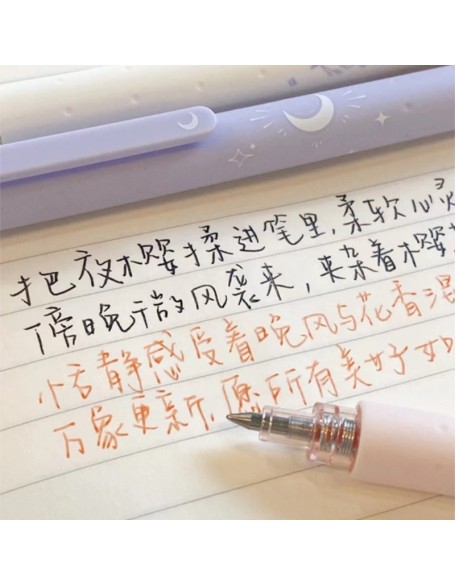 把夜樱揉进笔里,柔软心灵
傍晚微风袭来,夹杂着樱
恬静感受着晚风与花香混
万象更新,愿所有美好如